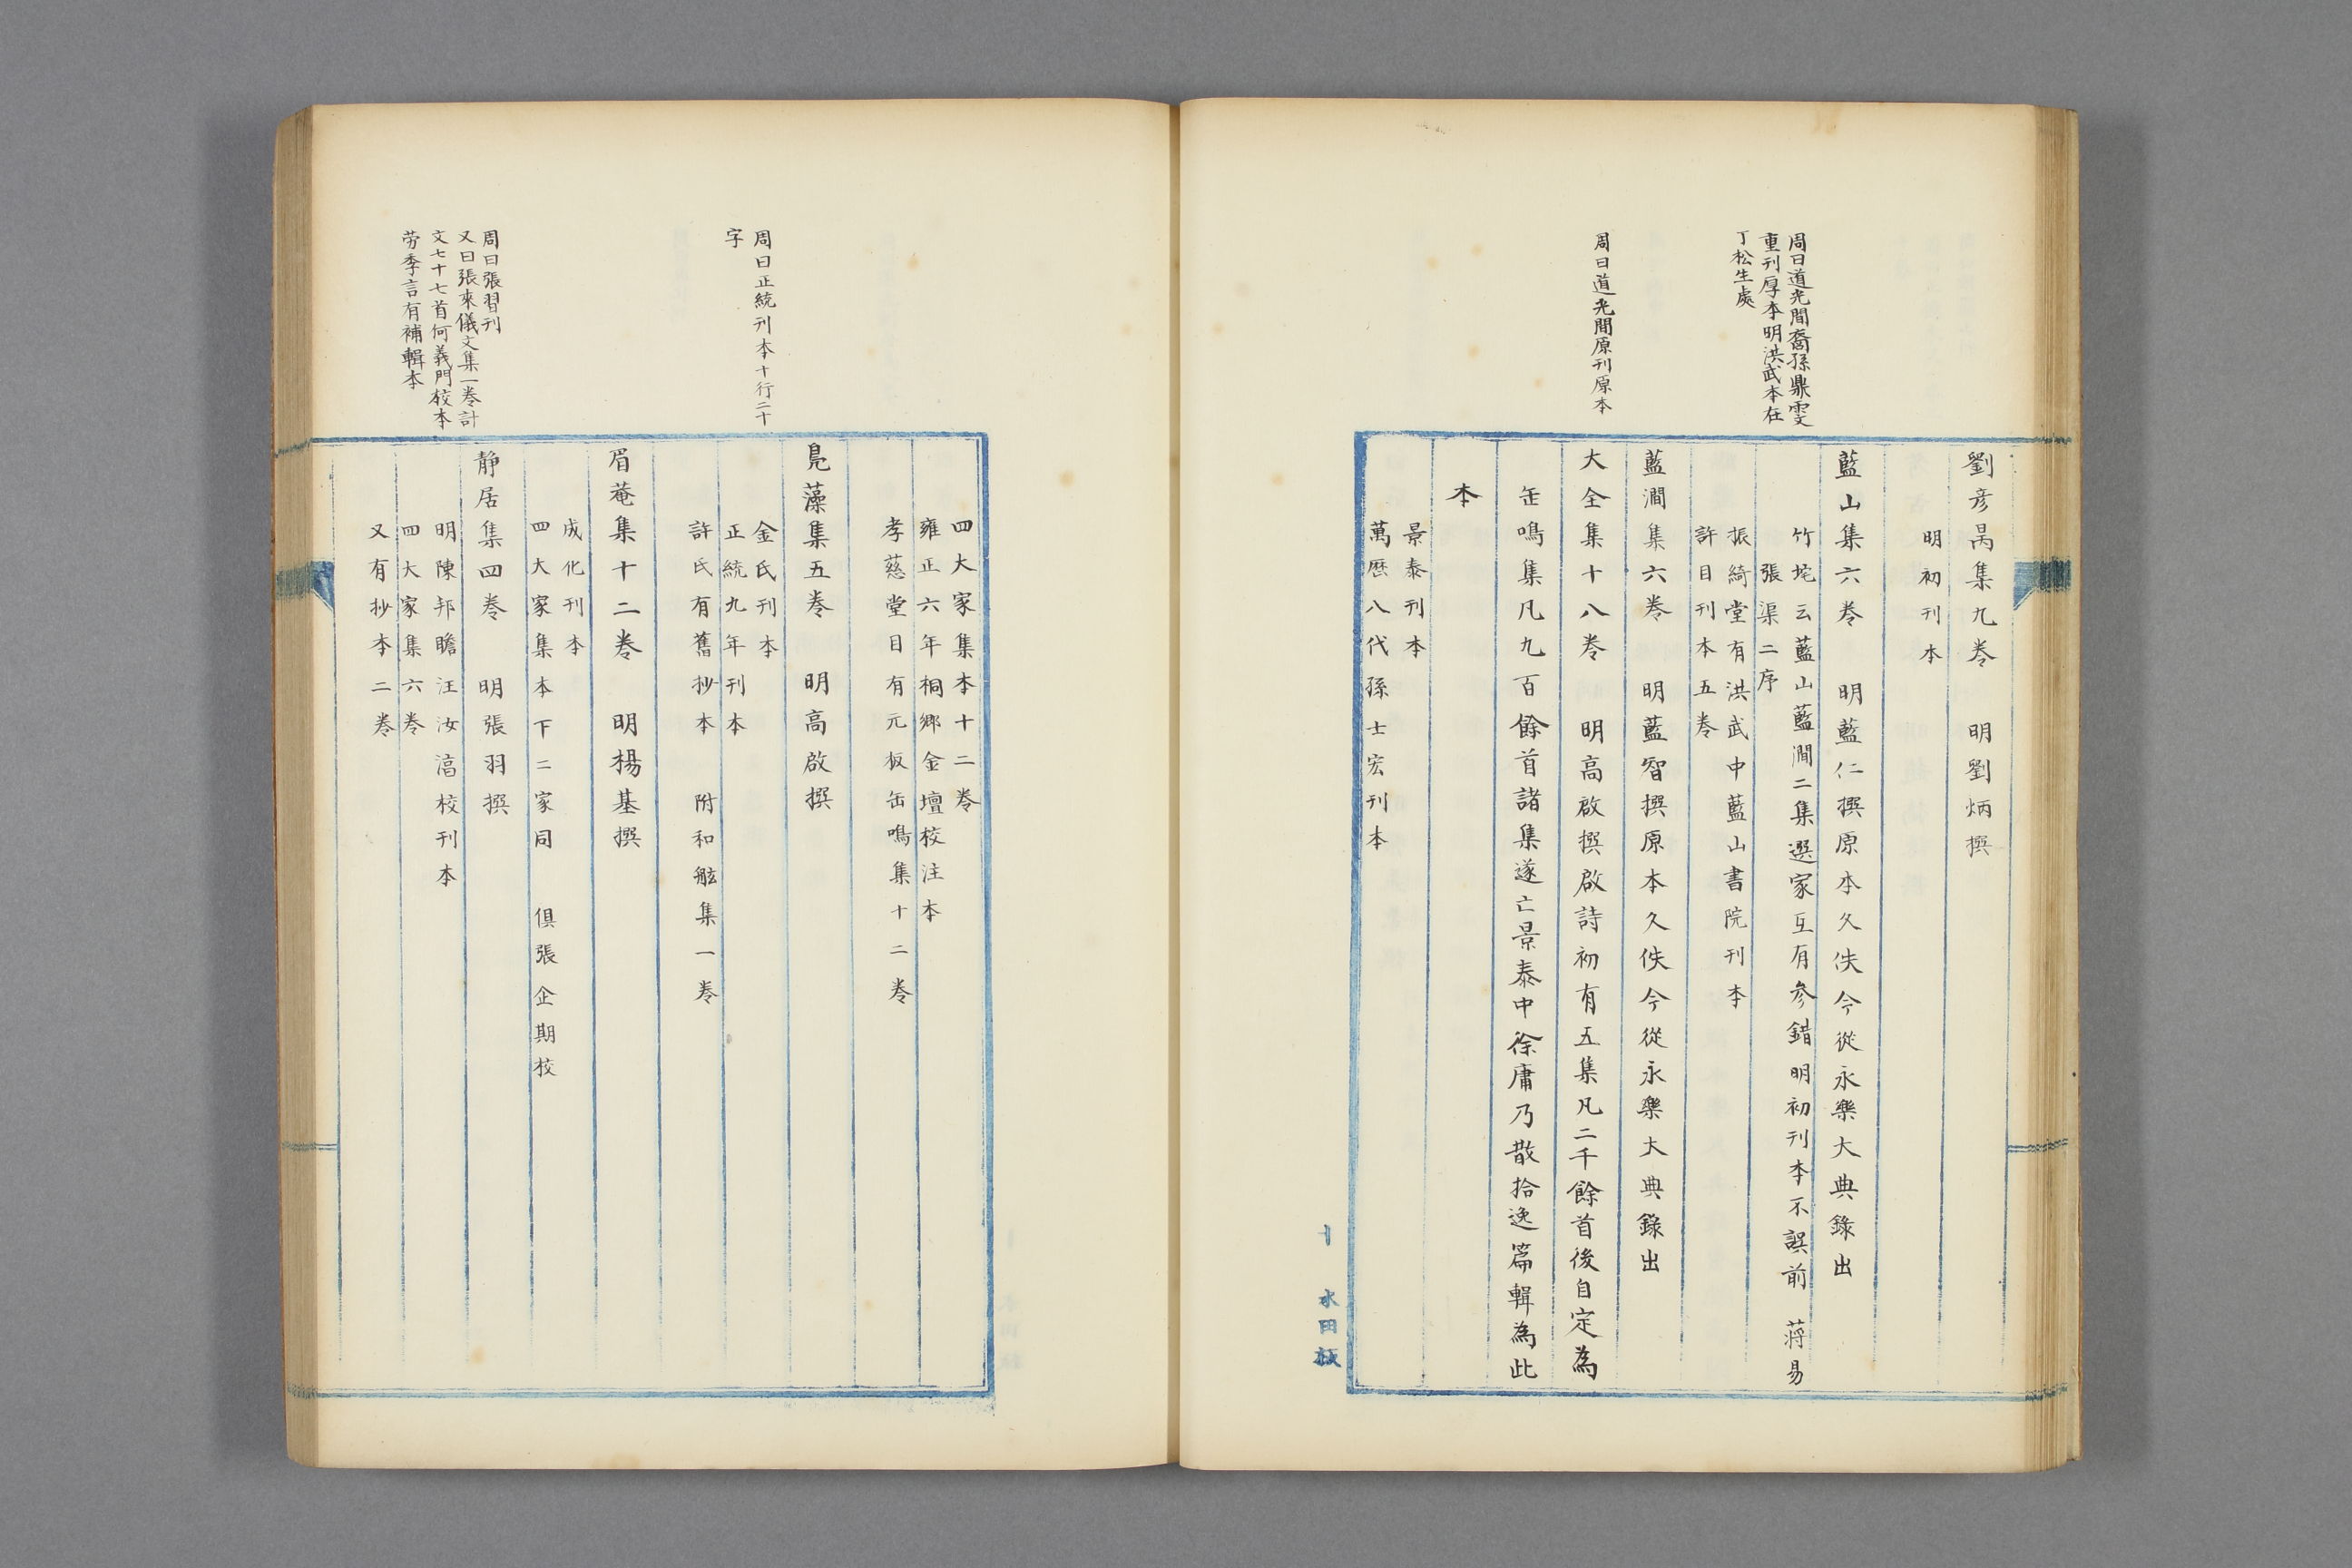 周曰道光間裔孫鼎雯
重刊厚本明洪武本在
丁松生處
周曰道光間原刊原本
劉彥昺集九卷　明劉炳撰
明初刊本
藍山集六卷　明藍仁撰原本久佚今從永樂大典錄出
竹垞云藍山藍澗二集選家互有參錯明初刊本不誤前　蔣易
張渠二序
振綺堂有洪武中藍山書院刊本
許目刊本五卷
藍澗集六卷　明藍智撰原本久佚今從永樂大典錄出
大全集十八卷　明高啟撰啟詩初有五集凡二千餘首後自定為
缶鳴集凡九百餘首諸集遂亡景泰中徐庸乃散拾逸篇輯為此
本
景泰刊本
萬曆八代孫士宏刊本
水田
周曰正統刊本十行二十
字
周曰張習刊
又曰張來儀文集一卷計
文七十七首何義門校本
勞季言有補輯本
四大家集本十二卷
雍正六年桐鄉金壇校注本
孝慈堂目有元板缶鳴集十二卷
鳧藻集五卷　明高啟撰
金氏刊本
正統九年刊本
許氏有舊抄本　附和舷集一卷
眉菴集十二卷　明楊基撰
成化刊本
四大家集本下二家同　俱張企期校
静居集四卷　明張羽撰
明陳邦瞻汪汝淓校刊本
四大家集六卷
又有抄本二卷